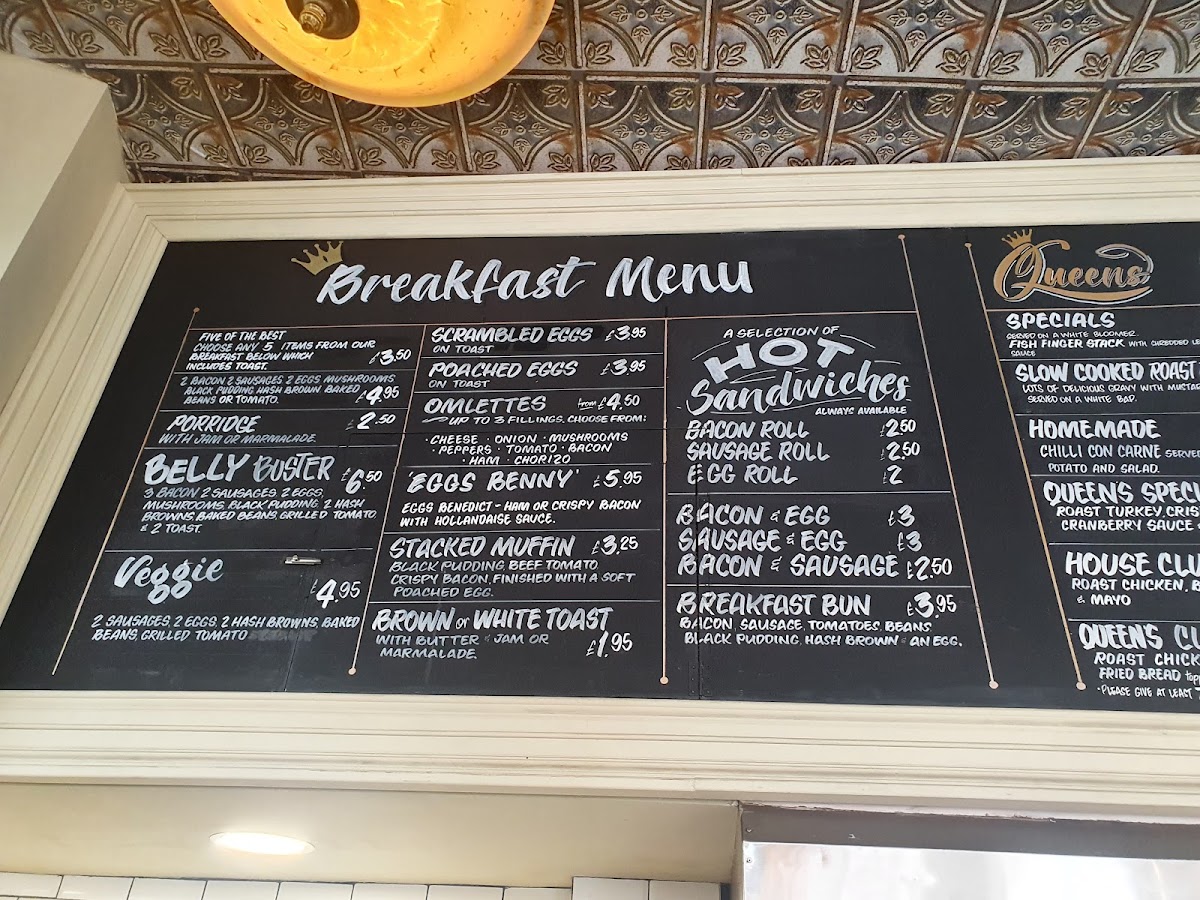 Breakfast Menu
FIVE OF THE BEST
CHOOSE ANY 5 ITEMS FROM OUR
BREAKFAST BELOW WHICH
INCLUDES TOAST. £3.50
2 BACON 2 SAUSAGES 2 EGGS MUSHROOMS
BLACK PUDDING HASH BROWN BAKED
BEANS OR TOMATO. £4.95
PORRIDGE £2.50
WITH JAM OR MARMALADE
BELLY BUSTER £6.50
3 BACON 2 SAUSAGES, 2 EGGS,
MUSHROOMS, BLACK PUDDING, 2 HASH
BROWNS, BAKED BEANS, GRILLED TOMATO
& 2 TOAST.
Veggie £4.95
2 SAUSAGES, 2 EGGS, 2 HASH BROWNS, BAKED
BEANS, GRILLED TOMATO
SCRAMBLED EGGS £3.95
ON TOAST
POACHED EGGS £3.95
ON TOAST
OMLETTES from £4.50
UP TO 3 FILLINGS. CHOOSE FROM:
· CHEESE · ONION · MUSHROOMS
· PEPPERS · TOMATO · BACON
· HAM · CHORIZO
EGGS BENNY' £5.95
EGGS BENEDICT - HAM OR CRISPY BACON
WITH HOLLANDAISE SAUCE.
STACKED MUFFIN £3.25
BLACK PUDDING, BEEF TOMATO
CRISPY BACON, FINISHED WITH A SOFT
POACHED EGG.
BROWN or WHITE TOAST
WITH BUTTER & JAM OR
MARMALADE. £1.95
A SELECTION OF
HOT
Sandwiches
ALWAYS AVAILABLE
BACON ROLL £2.50
SAUSAGE ROLL £2.50
EGG ROLL £2
BACON & EGG £3
SAUSAGE & EGG £3
BACON & SAUSAGE £2.50
BREAKFAST BUN £3.95
BACON, SAUSAGE, TOMATOES, BEANS,
BLACK PUDDING, HASH BROWN & AN EGG.
Queens
SPECIALS
SERVED ON A WHITE BLOOMER.
FISH FINGER STACK WITH SHREDDED
SAUCE
SLOW COOKED ROAST
LOTS OF DELICIOUS GRAVY WITH
SERVED ON A WHITE BAP.
HOMEMADE
CHILLI CON CARNE SERVED
POTATO AND SALAD.
QUEEN'S
ROAST TURKEY,
CRANBERRY SAUCE
HOUSE
ROAST CHICKEN,
& MAYO
QUEEN'S
ROAST
FRIED BREAD
·PLEASE GIVE AT LEAST